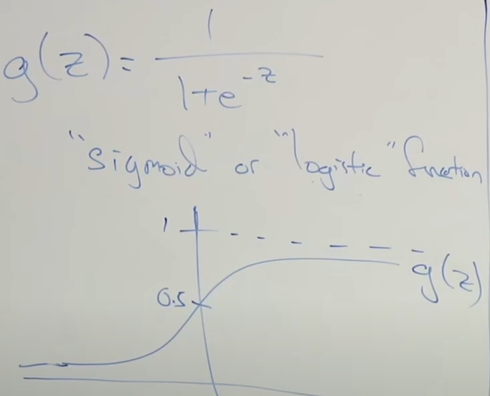 g(z) = 1 / 1+e^-z
"sigmoid" or "logistic" function
1
g(z)
0.5